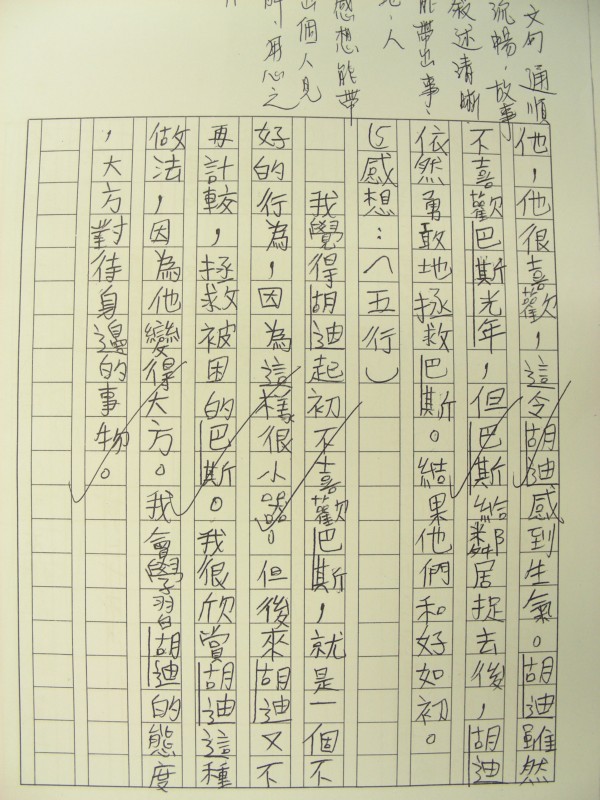 文句通順
流暢，故事
敘述清晰
能帶出事、
人
感想能帶
出個人見
解，用心之
他，他很喜歡，這令胡迪感到生氣。胡迪雖然
不喜歡巴斯光年，但巴斯給鄰居捉去後，胡迪
依然勇敢地拯救巴斯。結果他們和好如初。
(5)感想：（五行）
我覺得胡迪起初不喜歡巴斯，就是一個不
好的行為，因為這樣很小器。但後來胡迪又不
再計較，拯救被困的巴斯。我很欣賞胡迪這種
做法，因為他變得大方。我會學習胡迪的態度
，大方對待身邊的事物。